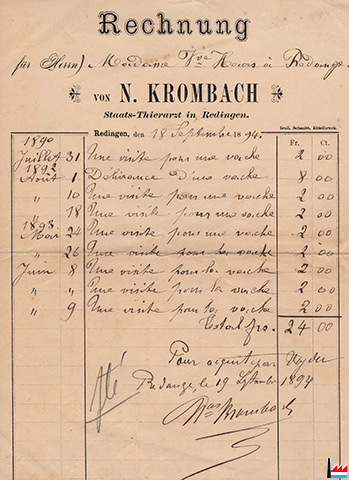 Rechnung
für Herrn) Madame Vve Kevers à Redange
von N. KROMBACH
Staats-Thierarzt in Redingen.
Redingen, den 18 September 1894.
Gust. Schmitt, Ettelbrück.
Fr. Ct.
1890
Juillet 31 Une visite pour une vache 2 00
1892
Août 1 Délivrance d'une vache 8 00
" 10 Une visite pour une vache 2 00
18 Une visite pour une vache 2 00
1893
Mai 24 Une visite pour une vache 2 00
" 26 Une visite pour la vache 2 00
Juin 8 Une visite pour la vache 2 00
" " Une visite pour la vache 2 00
" 9 Une visite pour la vache 2 00
Total frs. 24 00
Pour acquit par
Redange, le 19 Septembre 1894
Krombach